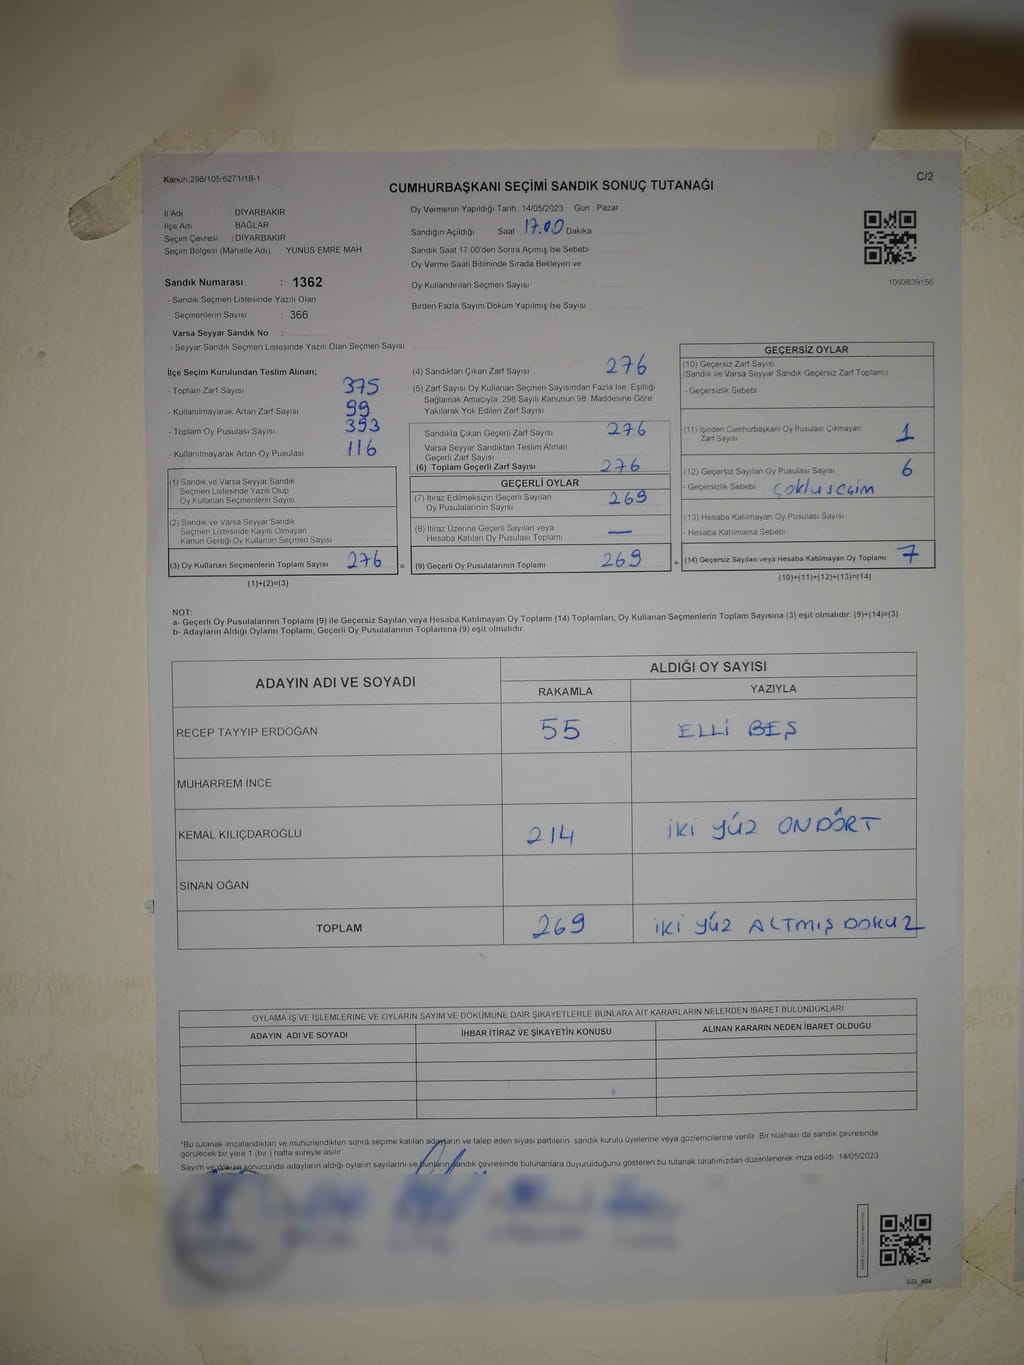 Kanun 298/105 6271/18-1
C/2
CUMHURBAŞKANI SEÇİMİ SANDIK SONUÇ TUTANAĞI
İl Adı DİYARBAKIR
İlçe Adı BAĞLAR
Seçim Çevresi : DİYARBAKIR
Seçim Bölgesi (Mahalle Adı) YUNUS EMRE MAH
Oy Vermenin Yapıldığı Tarih 14/05/2023 Gün Pazar
Sandığın Açıldığı Saat 17.00 Dakika
Sandık Saat 17 00'den Sonra Açımış İse Sebebi
Oy Verme Saati Bitiminde Sırada Bekleyen ve
Oy Kullandırılan Seçmen Sayısı
Birden Fazla Sayım Döküm Yapılmış İse Sayısı
1093839156
Sandık Numarası : 1362
- Sandık Seçmen Listesinde Yazılı Olan
Seçmenlerin Sayısı : 366
Varsa Seyyar Sandık No :
- Seyyar Sandık Seçmen Listesinde Yazılı Olan Seçmen Sayısı
İlçe Seçim Kurulundan Teslim Alınan;
- Toplam Zarf Sayısı 375
- Kullanılmayarak Artan Zarf Sayısı 99
- Toplam Oy Pusulası Sayısı 393
- Kullanılmayarak Artan Oy Pusulası 116
(1) Sandık ve Varsa Seyyar Sandık
Seçmen Listesinde Yazılı Olup
Oy Kullanan Seçmenlerin Sayısı
(2) Sandık ve Varsa Seyyar Sandık
Seçmen Listesinde Kayıtlı Olmayan
Kanun Gereği Oy Kullanan Seçmen Sayısı
(3) Oy Kullanan Seçmenlerin Toplam Sayısı 276 =
(1)+(2)=(3)
(4) Sandıktan Çıkan Zarf Sayısı 276
(5) Zarf Sayısı Oy Kullanan Seçmen Sayısından Fazla İse, Eşitliği
Sağlamak Amacıyla, 298 Sayılı Kanunun 98. Maddesine Göre
Yakılarak Yok Edilen Zarf Sayısı
Sandıkta Çıkan Geçerli Zarf Sayısı 276
Varsa Seyyar Sandıktan Teslim Alınan
Geçerli Zarf Sayısı
(6) Toplam Geçerli Zarf Sayısı 276
GEÇERLİ OYLAR
(7) İtiraz Edilmeksizin Geçerli Sayılan
Oy Pusulalarının Sayısı 269
(8) İtiraz Üzerine Geçerli Sayılan veya
Hesaba Katılan Oy Pusulası Toplamı —
(9) Geçerli Oy Pusulalarının Toplamı 269 +
GEÇERSİZ OYLAR
(10) Geçersiz Zarf Sayısı
(Sandık ve Varsa Seyyar Sandık Geçersiz Zarf Toplamı)
- Geçersizlik Sebebi
(11) İçinden Cumhurbaşkanı Oy Pusulası Çıkmayan
Zarf Sayısı 1
(12) Geçersiz Sayılan Oy Pusulası Sayısı 6
- Geçersizlik Sebebi çoklu seçim
(13) Hesaba Katılmayan Oy Pusulası Sayısı
- Hesaba Katılmama Sebebi
(14) Geçersiz Sayılan veya Hesaba Katılmayan Oy Toplamı 7
(10)+(11)+(12)+(13)=(14)
NOT:
a- Geçerli Oy Pusulalarının Toplamı (9) ile Geçersiz Sayılan veya Hesaba Katılmayan Oy Toplamı (14) Toplamları, Oy Kullanan Seçmenlerin Toplam Sayısına (3) eşit olmalıdır. (9)+(14)=(3)
b- Adayların Aldığı Oyların Toplamı, Geçerli Oy Pusulalarının Toplamına (9) eşit olmalıdır
ADAYIN ADI VE SOYADI ALDIĞI OY SAYISI
RAKAMLA YAZIYLA
RECEP TAYYİP ERDOĞAN 55 ELLİ BEŞ
MUHARREM İNCE
KEMAL KILIÇDAROĞLU 214 İKİ YÜZ ONDÖRT
SİNAN OĞAN
TOPLAM 269 İKİ YÜZ ALTMIŞ DOKUZ
OYLAMA İŞ VE İŞLEMLERİNE VE OYLARIN SAYIM VE DÖKÜMÜNE DAİR ŞİKAYETLERLE BUNLARA AİT KARARLARIN NELERDEN İBARET BULUNDUKLARI
ADAYIN ADI VE SOYADI İHBAR İTİRAZ VE ŞİKAYETİN KONUSU ALINAN KARARIN NEDEN İBARET OLDUĞU
*Bu tutanak imzalandıktan ve mühürlendikten sonra seçime katılan adayların ve talep eden siyasi partilerin sandık kurulu üyelerine veya gözlemcilerine verilir. Bir nüshası da sandık çevresinde
görülecek bir yere 1 (bir) hafta süreyle asılır
Sayım ve döküm sonucunda adayların aldığı oyların sayılarını ve bunların sandık çevresinde bulunanlara duyurulduğunu gösteren bu tutanak tarafımızdan düzenlenerek imza edildi. 14/05/2023
SSI_404